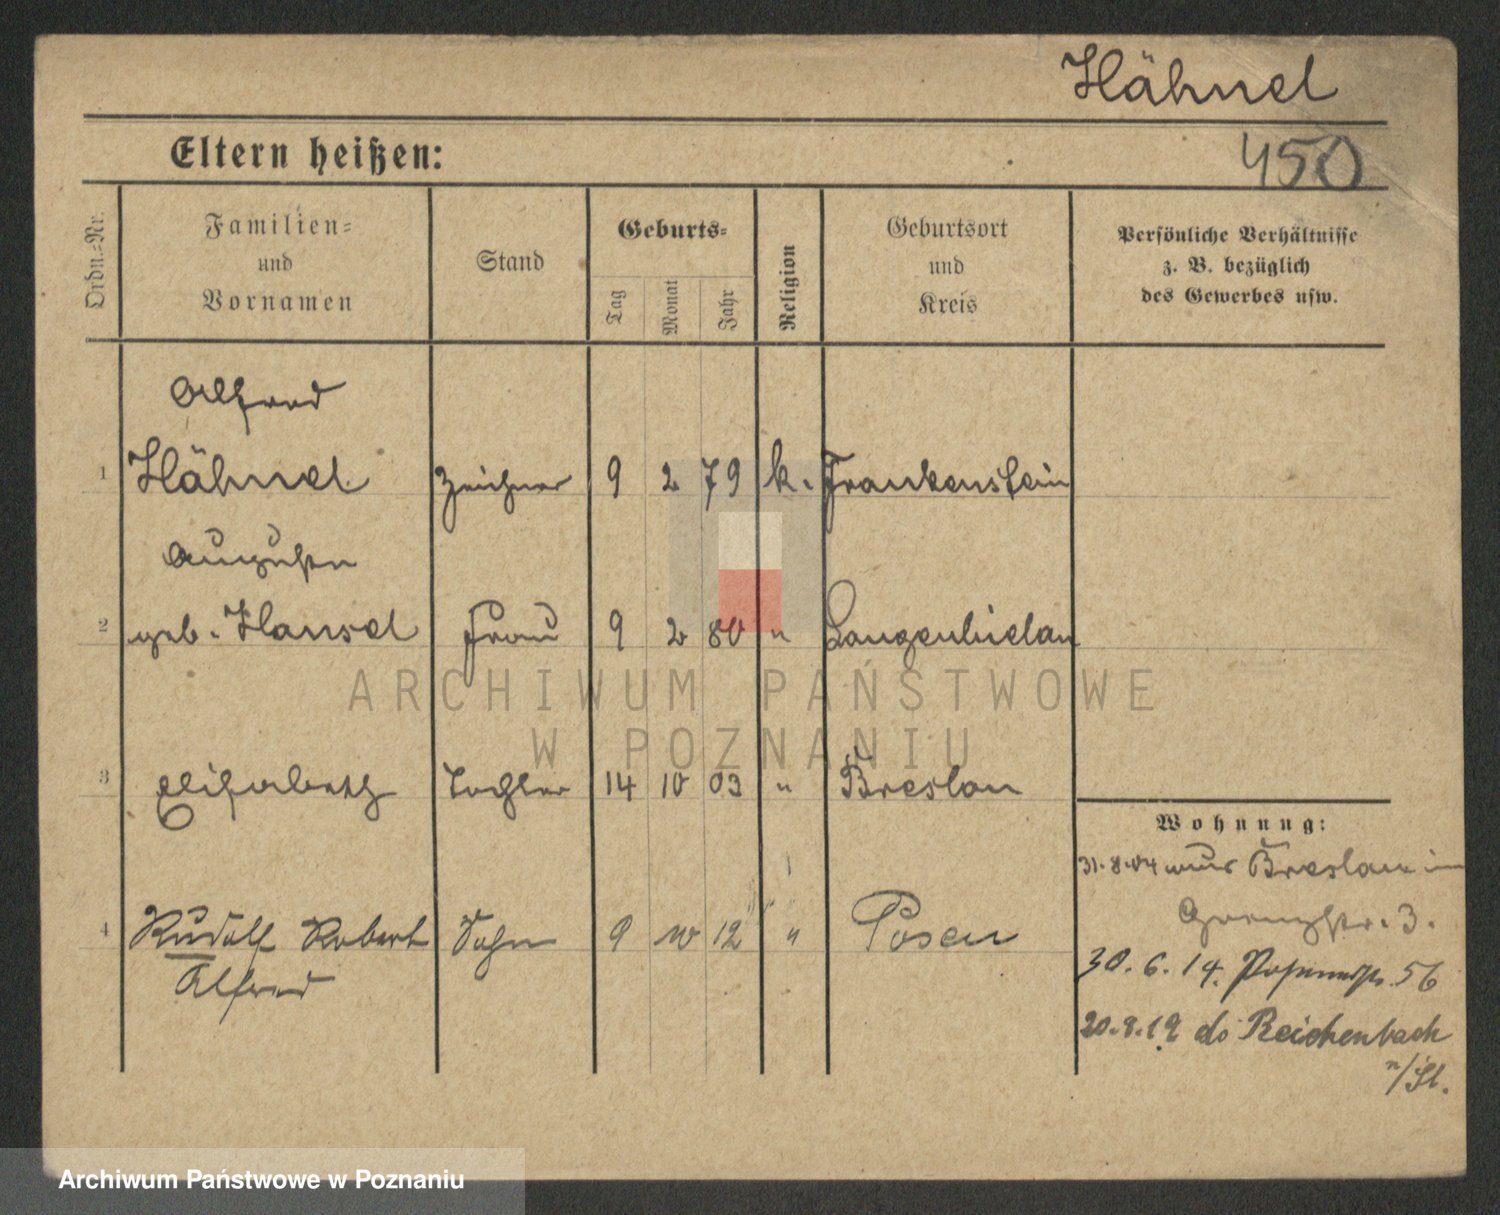 Hähnel
450
Eltern heißen:
Ordn.-Nr.
Familien-
und
Vornamen
Stand
Geburts-
Tag
Monat
Jahr
Religion
Geburtsort
und
Kreis
Persönliche Verhältnisse
z. B. bezüglich
des Gewerbes usw.
Alfred
1 Hähnel Zeichner 9 2 79 k. Frankenstein
Auguste
2 geb. Hansel Frau 9 2 80 " Langenbielau
3 Elisabeth Tochter 14 10 03 " Breslau
Wohnung:
31.8.04 aus Breslau in
3.
4 Rudolf Robert Sohn 9 10 12 " Posen
Alfred
30.6.14. 56
20.8.19 do Reichenbach
n/Sl.
ARCHIWUM PAŃSTWOWE
W POZNANIU
Archiwum Państwowe w Poznaniu